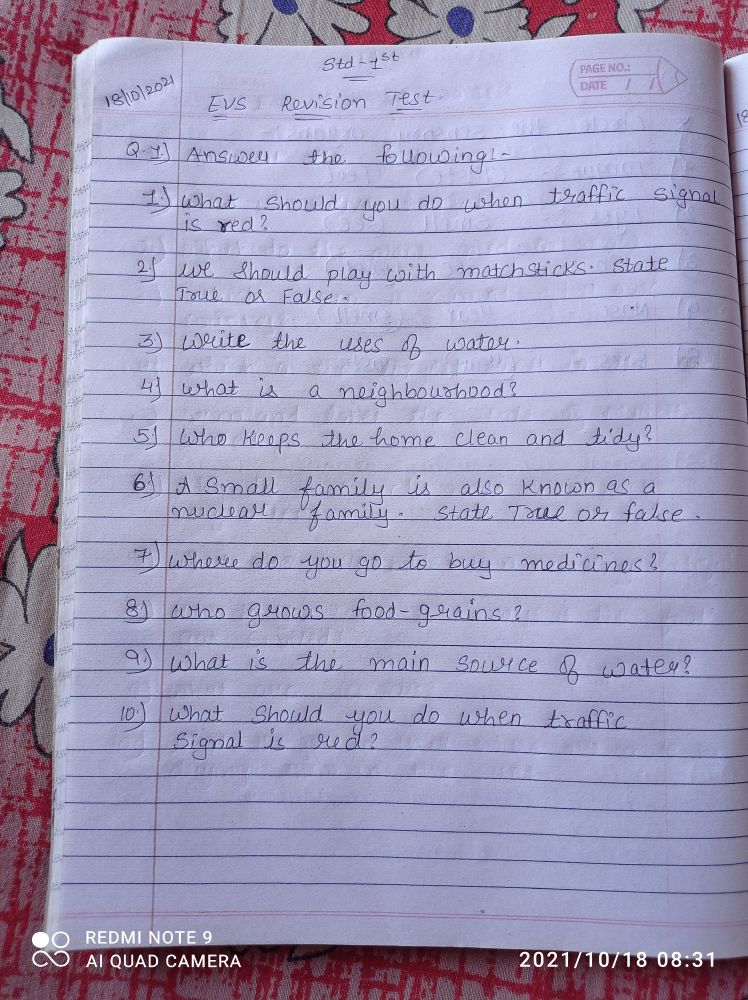 Std - 1st
PAGE NO.:
DATE / /
18/10/2021
EVS Revision Test.
Q.1.) Answer the following:-
1.) What should you do when traffic signal
is red?
2) We should play with matchsticks. State
True or False.
3) Write the uses of water.
4) What is a neighbourhood?
5) Who keeps the home clean and tidy?
6) A small family is also known as a
nuclear family. State True or false.
7) Where do you go to buy medicines?
8) Who grows food-grains?
9) What is the main source of water?
10.) What should you do when traffic
signal is red?
REDMI NOTE 9
AI QUAD CAMERA
2021/10/18 08:31